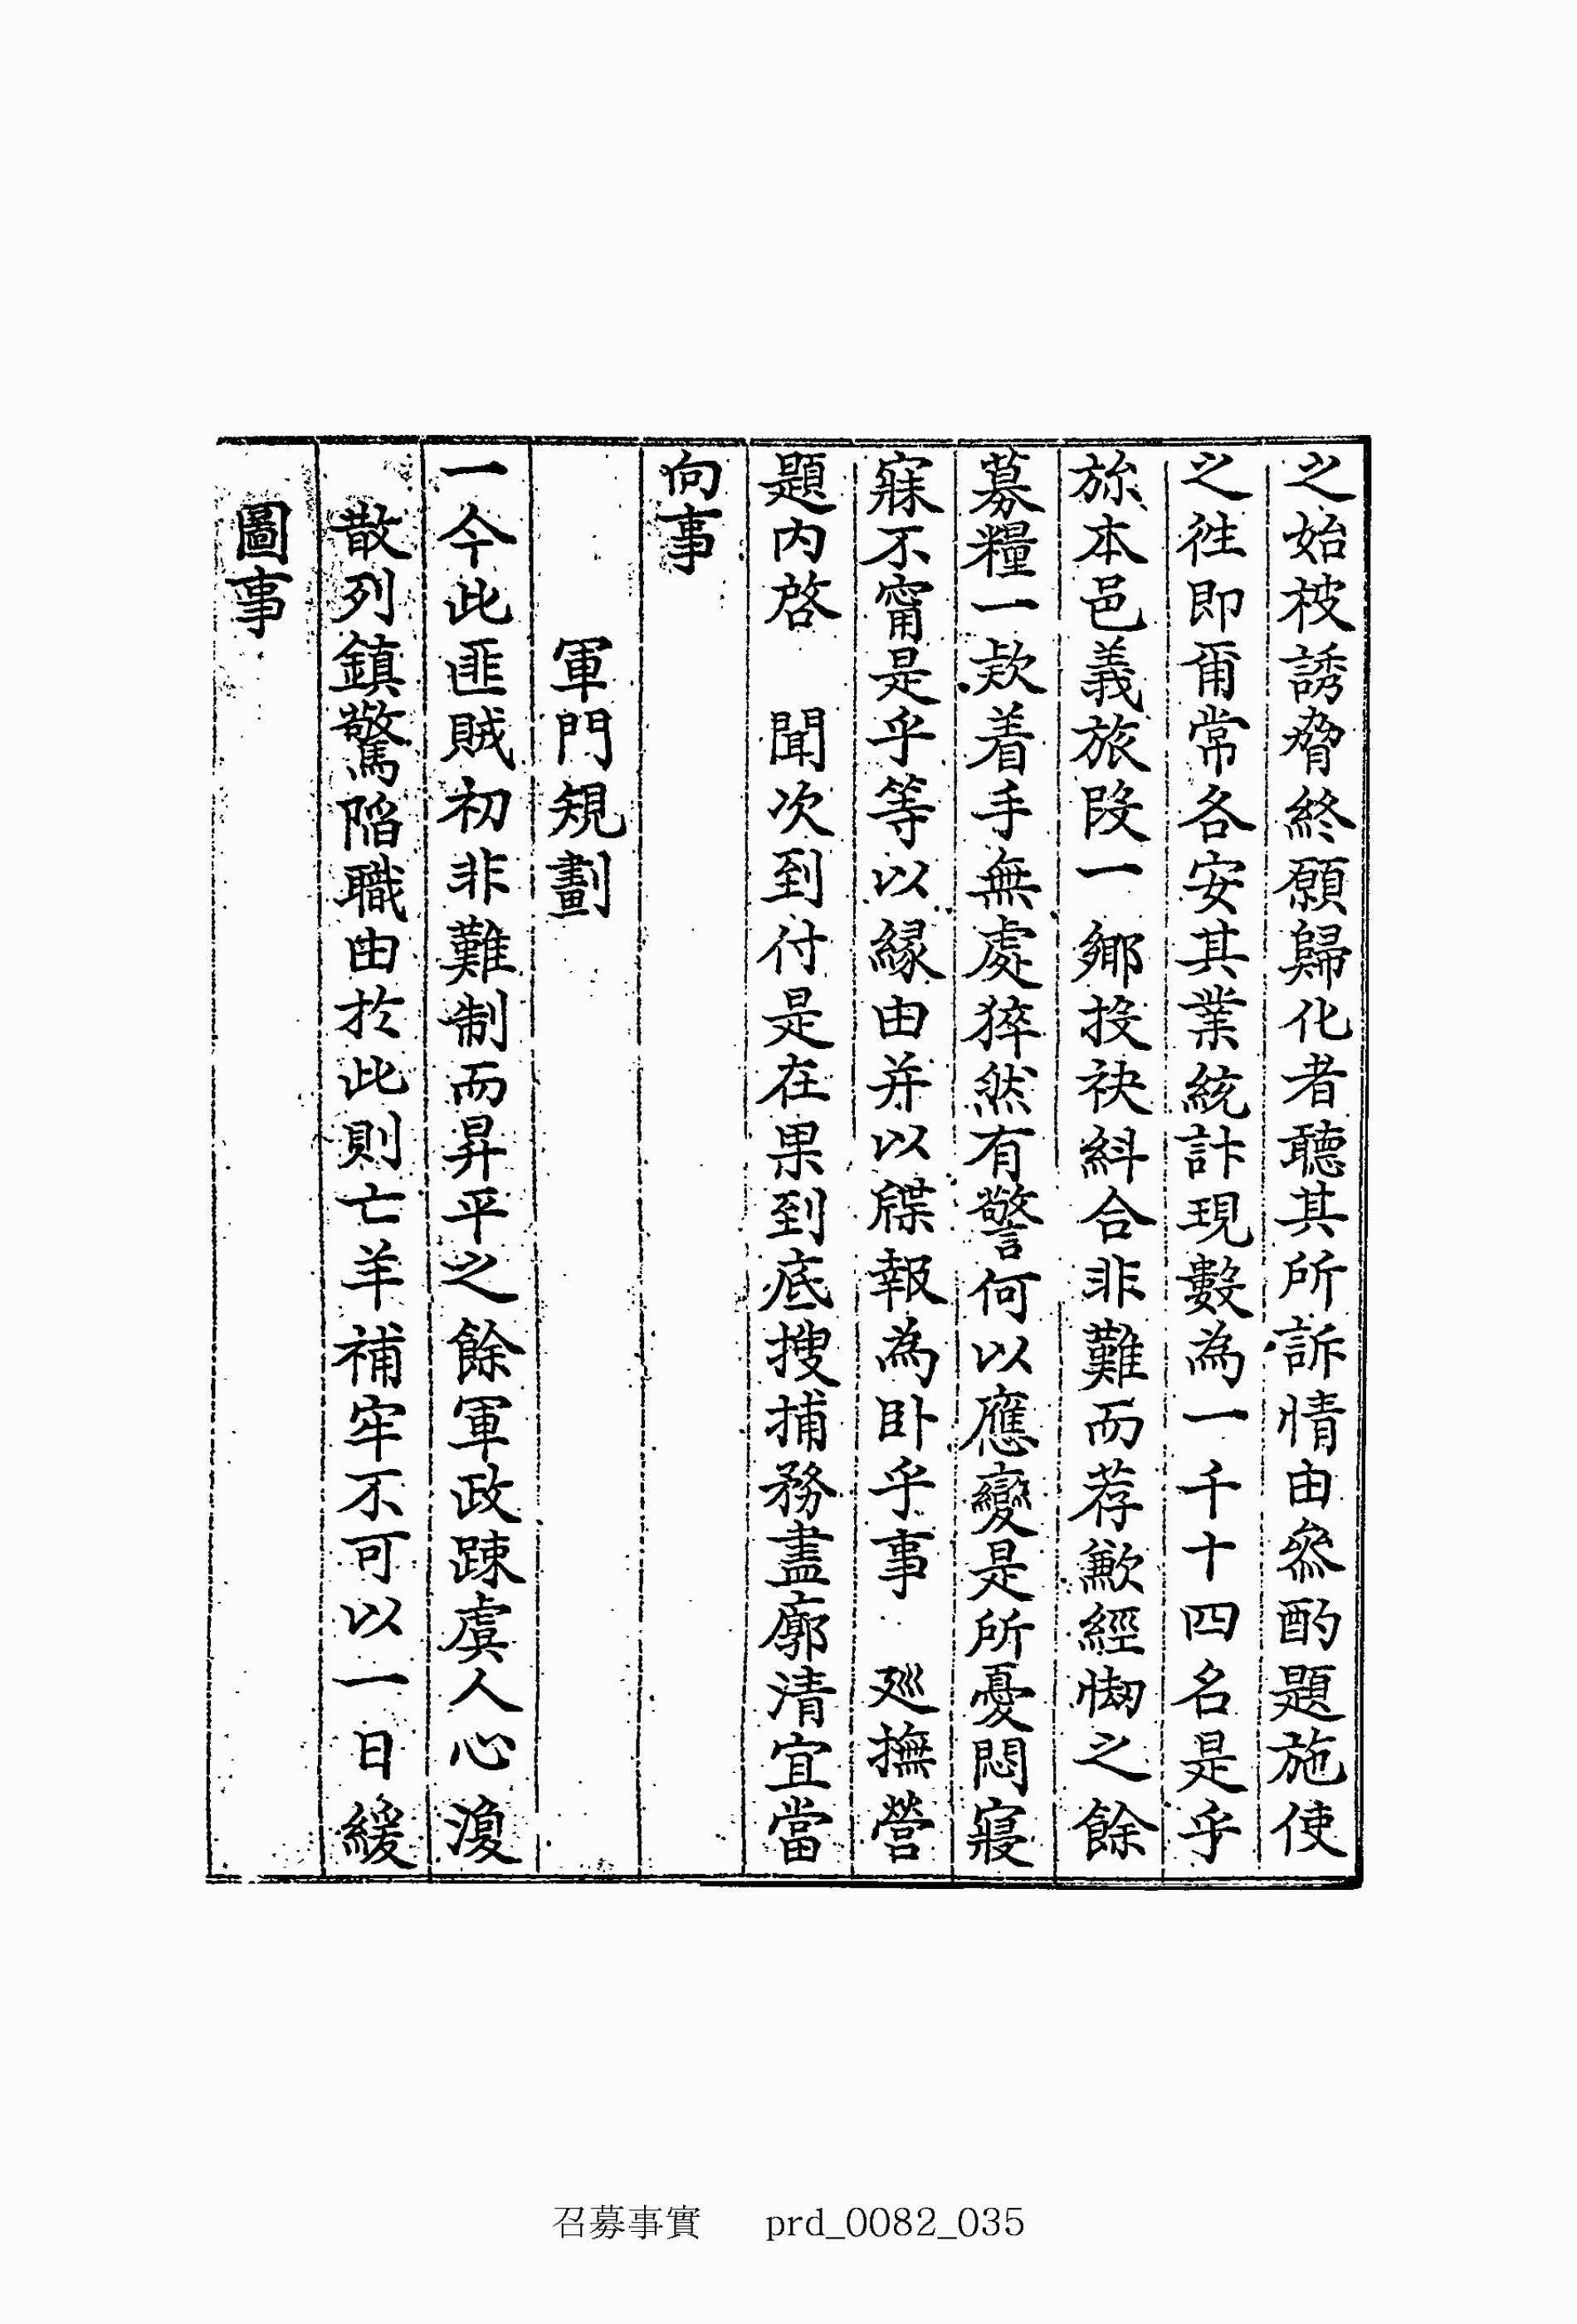 之始被誘脅終願歸化者聽其所訴情由參酌題施使
之徃即甭常各安其業統計現數為一千十四名是乎
旀本邑義旅段一鄉投袂糾合非難而荐歉經惱之餘
募糧一欵着手無處猝然有警何以應變是所憂悶寢
寐不甯是乎等以緣由并以牒報為卧乎事　廵撫營
題內啓　聞次到付是在果到底搜捕務盡廓清宜當
向事
軍門規劃
一今此匪賊初非難制而昇平之餘軍政踈虞人心渙
散列鎮驚陷職由於此則亡羊補牢不可以一日緩
圖事
召募事實　prd_0082_035